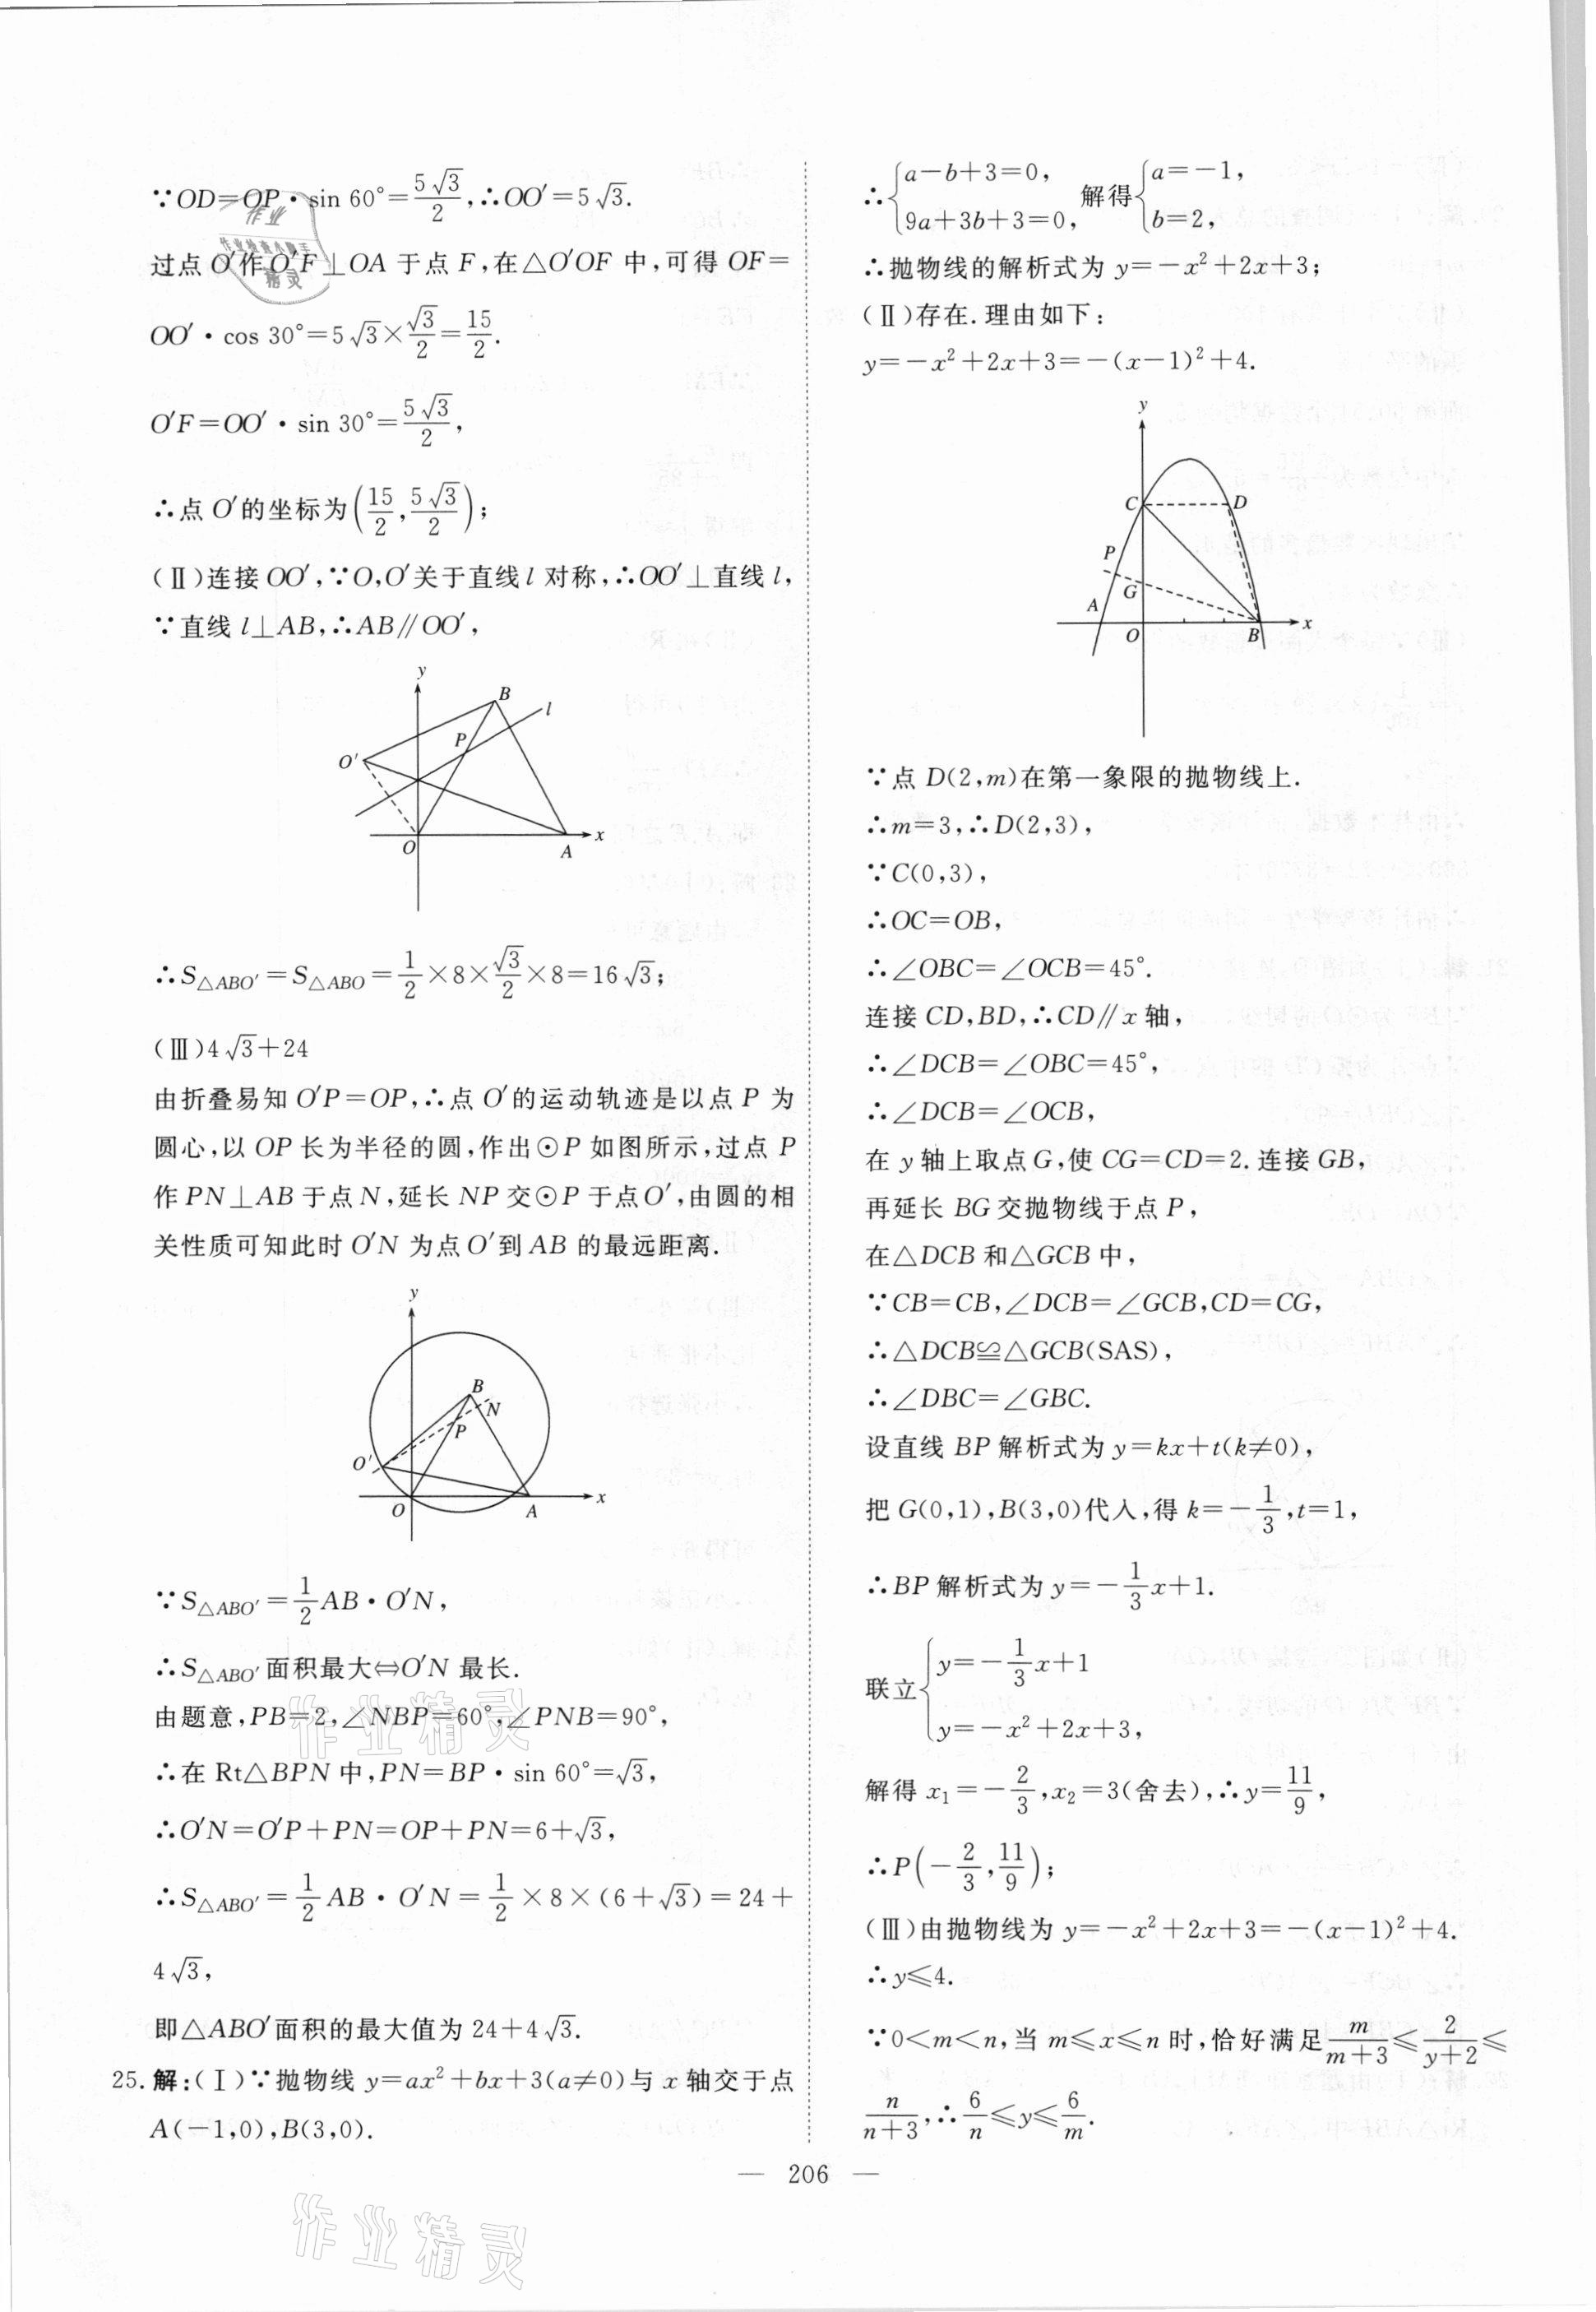 ∵OD=OP·sin 60°=5√3/2,∴OO′=5√3.
过点 O′作 O′F⊥OA 于点 F,在△O′OF 中,可得 OF=
OO′·cos 30°=5√3×√3/2=15/2.
O′F=OO′·sin 30°=5√3/2,
∴点 O′的坐标为(15/2,5√3/2);
(Ⅱ)连接 OO′,∵O,O′关于直线 l 对称,∴OO′⊥直线 l,
∵直线 l⊥AB,∴AB∥OO′,
y
B
l
P
O′
O
A
x
∴S△ABO′=S△ABO=1/2×8×√3/2×8=16√3;
(Ⅲ)4√3+24
由折叠易知 O′P=OP,∴点 O′的运动轨迹是以点 P 为
圆心,以 OP 长为半径的圆,作出⊙P 如图所示,过点 P
作 PN⊥AB 于点 N,延长 NP 交⊙P 于点 O′,由圆的相
关性质可知此时 O′N 为点 O′到 AB 的最远距离.
y
B
N
P
O′
O
A
x
∵S△ABO′=1/2AB·O′N,
∴S△ABO′面积最大⇔O′N 最长.
由题意,PB=2,∠NBP=60°,∠PNB=90°,
∴在 Rt△BPN 中,PN=BP·sin 60°=√3,
∴O′N=O′P+PN=OP+PN=6+√3,
∴S△ABO′=1/2AB·O′N=1/2×8×(6+√3)=24+
4√3,
即△ABO′面积的最大值为 24+4√3.
25.解:(Ⅰ)∵抛物线 y=ax²+bx+3(a≠0)与 x 轴交于点
A(−1,0),B(3,0).
∴{a−b+3=0, 9a+3b+3=0, 解得{a=−1, b=2,
∴抛物线的解析式为 y=−x²+2x+3;
(Ⅱ)存在.理由如下:
y=−x²+2x+3=−(x−1)²+4.
y
C
D
P
G
A
O
B
x
∵点 D(2,m)在第一象限的抛物线上.
∴m=3,∴D(2,3),
∵C(0,3),
∴OC=OB,
∴∠OBC=∠OCB=45°.
连接 CD,BD,∴CD∥x 轴,
∴∠DCB=∠OBC=45°,
∴∠DCB=∠OCB,
在 y 轴上取点 G,使 CG=CD=2.连接 GB,
再延长 BG 交抛物线于点 P,
在△DCB 和△GCB 中,
∵CB=CB,∠DCB=∠GCB,CD=CG,
∴△DCB≌△GCB(SAS),
∴∠DBC=∠GBC.
设直线 BP 解析式为 y=kx+t(k≠0),
把 G(0,1),B(3,0)代入,得 k=−1/3,t=1,
∴BP 解析式为 y=−1/3x+1.
联立{y=−1/3x+1 y=−x²+2x+3,
解得 x₁=−2/3,x₂=3(舍去),∴y=11/9,
∴P(−2/3,11/9);
(Ⅲ)由抛物线为 y=−x²+2x+3=−(x−1)²+4.
∴y≤4.
∵0<m<n,当 m≤x≤n 时,恰好满足m/(m+3)≤2/(y+2)≤
n/(n+3),∴6/n≤y≤6/m.
— 206 —
作业精灵
作业精灵